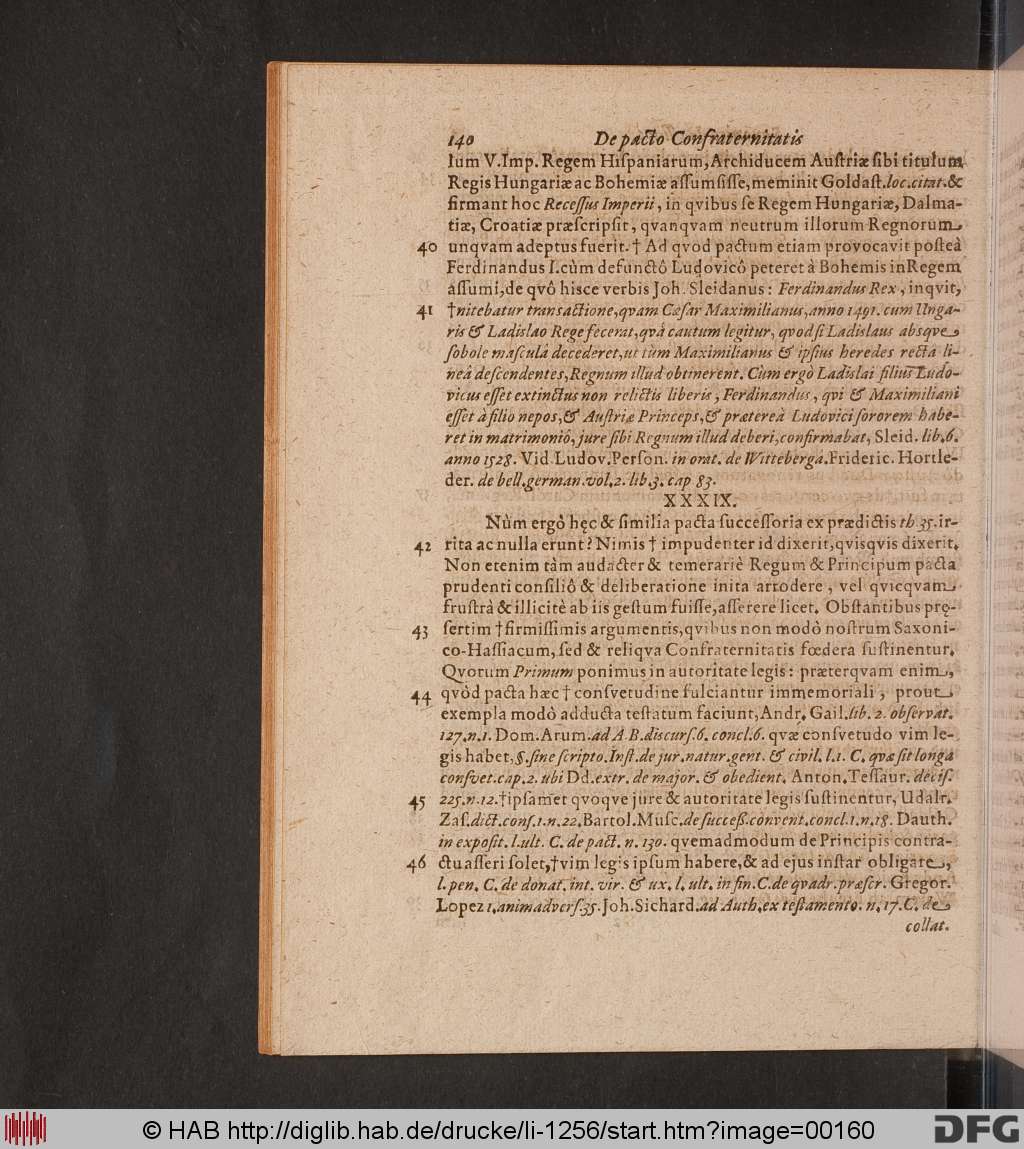 140 De pacto Confraternitatis
lum V. Imp. Regem Hiſpaniarum, Archiducem Auſtriæ ſibi titulum
Regis Hungariæ ac Bohemiæ aſſumſiſſe, meminit Goldaſt. loc. citat. &
firmant hoc Receſſus Imperii, in qvibus ſe Regem Hungariæ, Dalma-
tiæ, Croatiæ præſcripſit, qvanqvam neutrum illorum Regnorum
40 unqvam adeptus fuerit. † Ad qvod pactum etiam provocavit poſteà
Ferdinandus I. cùm defunctô Ludovicô peteret à Bohemis in Regem
aſſumi, de qvô hisce verbis Joh. Sleidanus: Ferdinandus Rex, inqvit,
41 †nitebatur transactione, qvam Cæſar Maximilianus, anno 1491. cum Unga-
ris & Ladislao Rege fecerat, qvâ cautum legitur, qvod ſi Ladislaus absqve
ſobole maſculâ decederet, ut tùm Maximilianus & ipſius heredes rectâ li-
neâ deſcendentes, Regnum illud obtinerent. Cum ergò Ladislai filius Ludo-
vicus eſſet extinctus non relictis liberis, Ferdinandus, qvi & Maximiliani
eſſet à filio nepos, & Auſtriæ Princeps, & prætereà Ludovici ſororem habe-
ret in matrimoniô, jure ſibi Regnum illud deberi, confirmabat, Sleid. lib. 6.
anno 1528. Vid. Ludov. Perſon. in orat. de Witteberga. Frideric. Hortle-
der. de bell. german. vol. 2. lib. 3. cap 83.
XXXIX.
Nùm ergò hęc & ſimilia pacta ſucceſſoria ex prædictis th. 35. ir-
42 rita ac nulla erunt? Nimis † impudenter id dixerit, qvisqvis dixerit.
Non etenim tàm audacter & temerariè Regum & Principum pacta
prudenti conſiliô & deliberatione inita arrodere, vel qvicqvam
fruſtrà & illicitè ab iis geſtum fuiſſe, aſſerere licet. Obſtantibus prę-
43 ſertim † firmiſſimis argumentis, qvibus non modò noſtrum Saxoni-
co-Haſſiacum, ſed & reliqva Confraternitatis fœdera ſuſtinentur.
Qvorum Primum ponimus in autoritate legis: præterqvam enim,
44 qvòd pacta hæc † conſvetudine fulciantur immemoriali, prout
exempla modò adducta teſtatum faciunt, Andr. Gail. lib. 2. obſervat.
127. n. 1. Dom. Arum. ad A. B. discurſ. 6. concl. 6. qvæ conſvetudo vim le-
gis habet, §. ſine ſcripto. Inſt. de jur. natur. gent. & civil. l. 1. C. qvæ ſit longa
conſvet. cap. 2. ubi Dd. extr. de major. & obedient. Anton. Teſſaur. deciſ.
45 225. n. 12. † ipſamet qvoqve jure & autoritate legis ſuſtinentur, Udalr.
Zaſ. dict. conſ. 1. n. 22. Bartol. Muſc. de ſucceß. convent. concl. 1. n. 18. Dauth.
in expoſit. l. ult. C. de pact. n. 130. qvemadmodum de Principis contra-
46 ctu aſſeri ſolet, † vim legis ipſum habere, & ad ejus inſtar obligare,
l. pen. C. de donat. int. vir. & ux. l. ult. in fin. C. de qvadr. præſcr. Gregor.
Lopez 1. animadverſ. 35. Joh. Sichard. ad Auth. ex teſtamento. n. 17. C. de
collat.
© HAB http://diglib.hab.de/drucke/li-1256/start.htm?image=00160
DFG